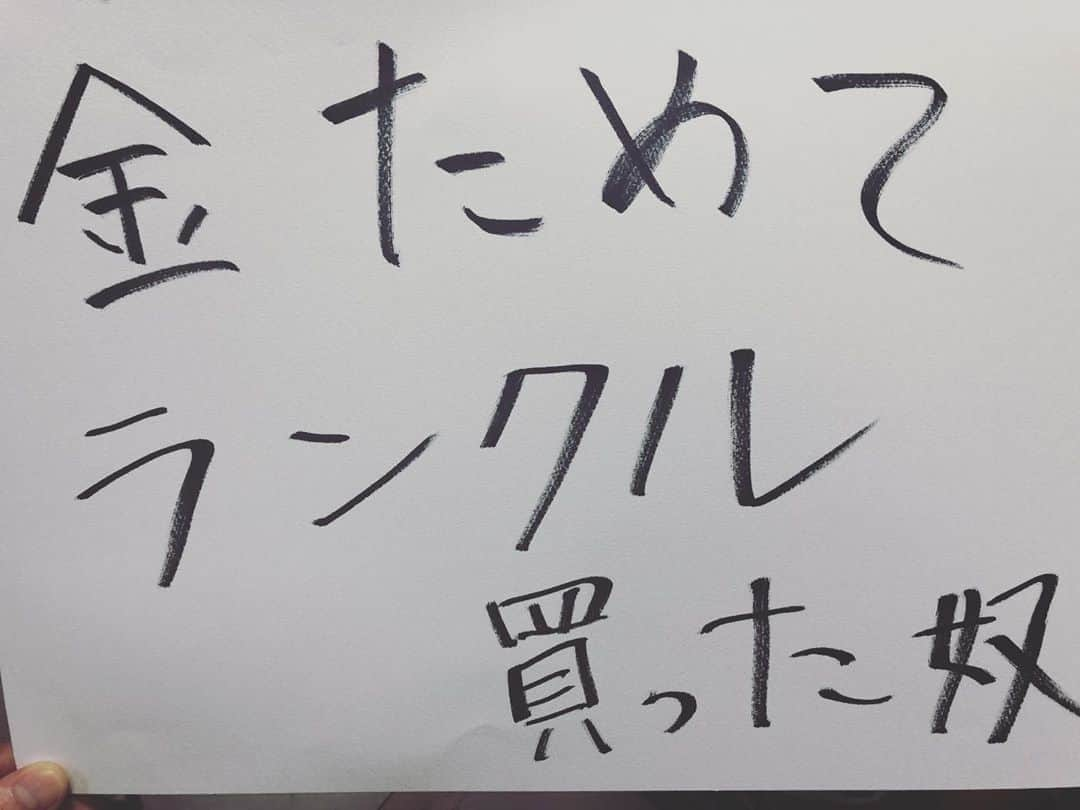 金ためて
ランクル
買った奴